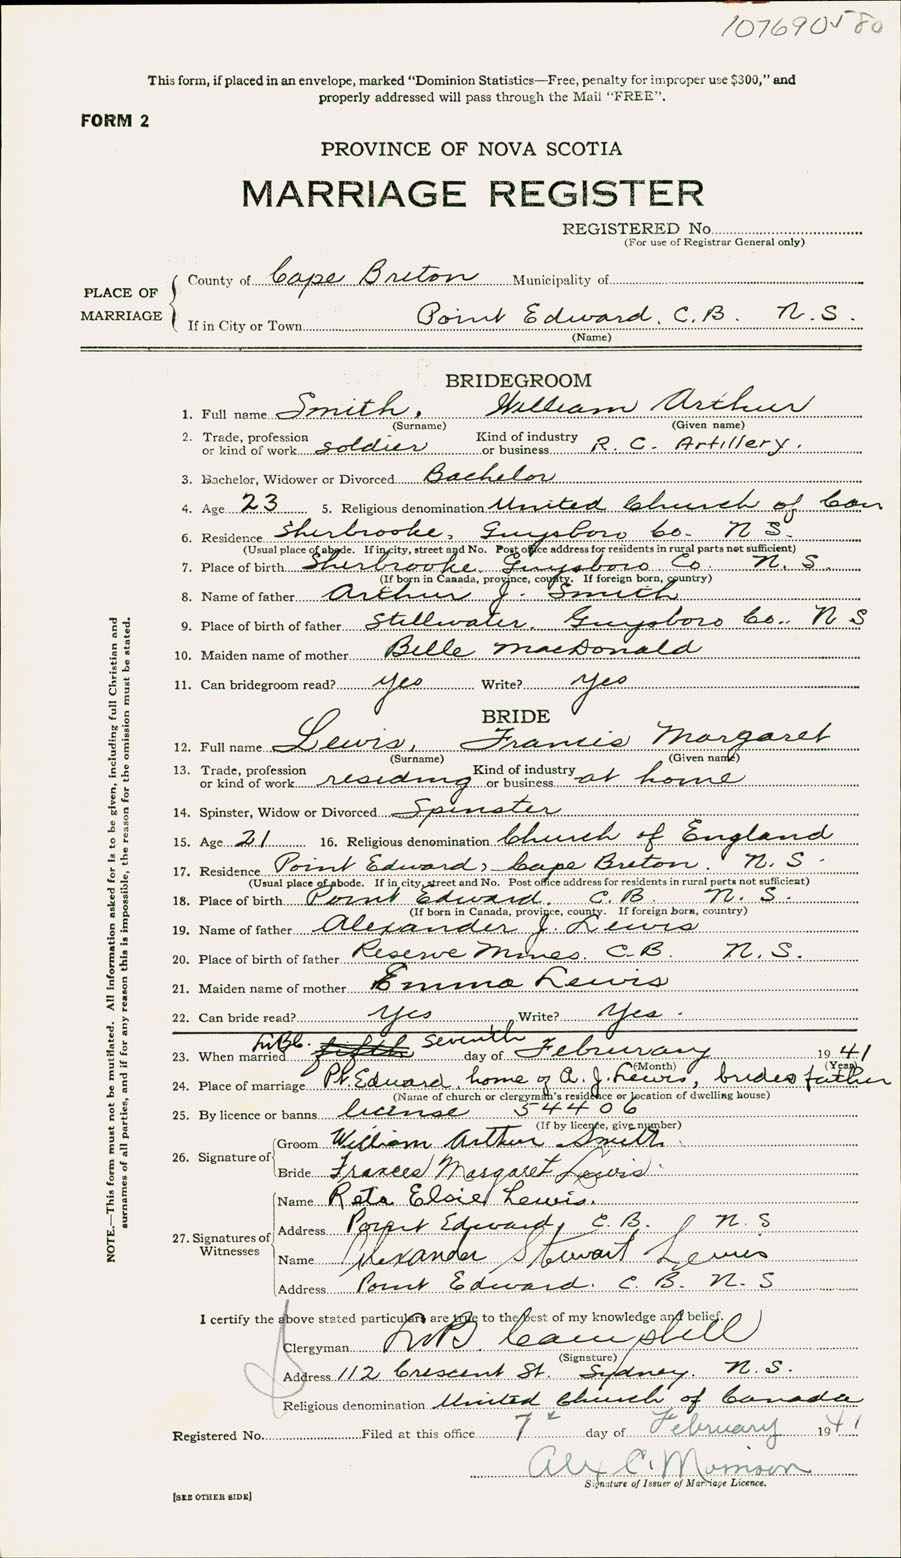 107690 580
This form, if placed in an envelope, marked "Dominion Statistics—Free, penalty for improper use $300," and
properly addressed will pass through the Mail "FREE".
FORM 2
PROVINCE OF NOVA SCOTIA
MARRIAGE REGISTER
REGISTERED No.
(For use of Registrar General only)
PLACE OF MARRIAGE
County of Cape Breton Municipality of
If in City or Town Point Edward. C.B. N.S.
(Name)
BRIDEGROOM
1. Full name Smith, William Arthur
(Surname) (Given name)
2. Trade, profession or kind of work soldier Kind of industry or business R. C. Artillery.
3. Bachelor, Widower or Divorced Bachelor
4. Age 23 5. Religious denomination United Church of Can
6. Residence Sherbrooke, Guysboro Co. N S.
(Usual place of abode. If in city, street and No. Post office address for residents in rural parts not sufficient)
7. Place of birth Sherbrooke. Guysboro Co. N. S.
(If born in Canada, province, county. If foreign born, country)
8. Name of father Arthur J. Smith
9. Place of birth of father Stillwater. Guysboro Co.. N S
10. Maiden name of mother Belle MacDonald
11. Can bridegroom read? yes Write? yes
BRIDE
12. Full name Lewis, Francis Margaret
(Surname) (Given name)
13. Trade, profession or kind of work residing Kind of industry or business at home
14. Spinster, Widow or Divorced Spinster
15. Age 21 16. Religious denomination Church of England
17. Residence Point Edward, Cape Breton. N. S.
(Usual place of abode. If in city, street and No. Post office address for residents in rural parts not sufficient)
18. Place of birth Point Edward. C.B. N. S.
(If born in Canada, province, county. If foreign born, country)
19. Name of father Alexander J. Lewis
20. Place of birth of father Reserve Mines. C.B. N. S.
21. Maiden name of mother Emma Lewis
22. Can bride read? Yes Write? Yes.
23. When married fifth Seventh day of Februrary 1941
(Month) (Year)
24. Place of marriage Pt. Edward, home of A. J. Lewis, brides father
(Name of church or clergyman's residence or location of dwelling house)
25. By licence or banns license 54406
(If by licence, give number)
26. Signature of
Groom William Arthur Smith
Bride Frances Margaret Lewis.
27. Signatures of Witnesses
Name Reta Elsie Lewis.
Address Point Edward, C.B. N. S
Name Alexander Stewart Lewis
Address Point Edward. C. B. N. S
I certify the above stated particulars are true to the best of my knowledge and belief.
Clergyman Campbell
(Signature)
Address 112 Crescent St. Sydney. N.S.
Religious denomination United Church of Canada
Registered No. Filed at this office 7th day of February 1941
Alex C. Morrison
Signature of Issuer of Marriage Licence.
[SEE OTHER SIDE]
NOTE.—This form must not be mutilated. All information asked for is to be given, including full Christian and
surnames of all parties, and if for any reason this is impossible, the reason for the omission must be stated.